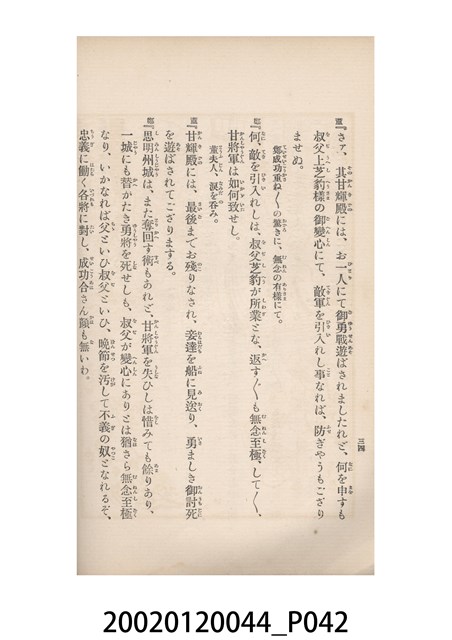 董『さァ、其甘輝殿には、お一人にて御勇戰遊ばされましたれど、何を申すも
叔父上芝豹樣の御變心にて、敵軍を引入れし事なれば、防ぎやうもござり
ませぬ。
鄭成功重ね〱の驚きに、無念の有樣にて。
鄭『何、敵を引入れしは、叔父芝豹が所業とな、返す〲も無念至極、して〱、
甘將軍は如何致せし。
董夫人、涙を呑み。
董『甘輝殿には、最後までお殘りなされ、妾達を船に見送り、勇ましき御討死
を遊ばされてござりまする。
鄭『思明州城は、また奪回す術もあれど、甘將軍を失ひしは惜みても餘りあり、
一城にも替がたき勇將を死せしも、叔父が變心にありとは猶さら無念至極
なり、いかなれば父といひ叔父といひ、晩節を汚して不義の奴となれるぞ、
忠義に働く各將に對し、成功合さん顏も無いわ。
三四
20020120044_P042